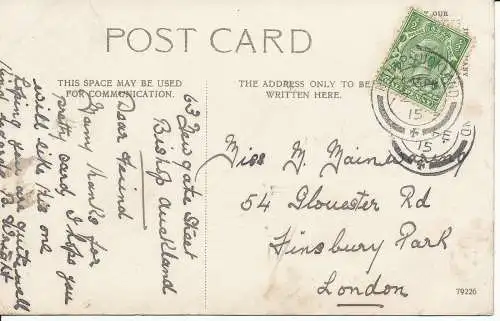 POST CARD
THIS SPACE MAY BE USED
FOR COMMUNICATION.
THE ADDRESS ONLY TO BE
WRITTEN HERE.
63 Newgate Street
Bishop Auckland
Dear Friend
Many thanks for
pretty card, I hope you
will like this one
Hoping you are quite well
kind regards
Miss M. Mainwaring
54 Gloucester Rd
Finsbury Park
London
15
15
79226